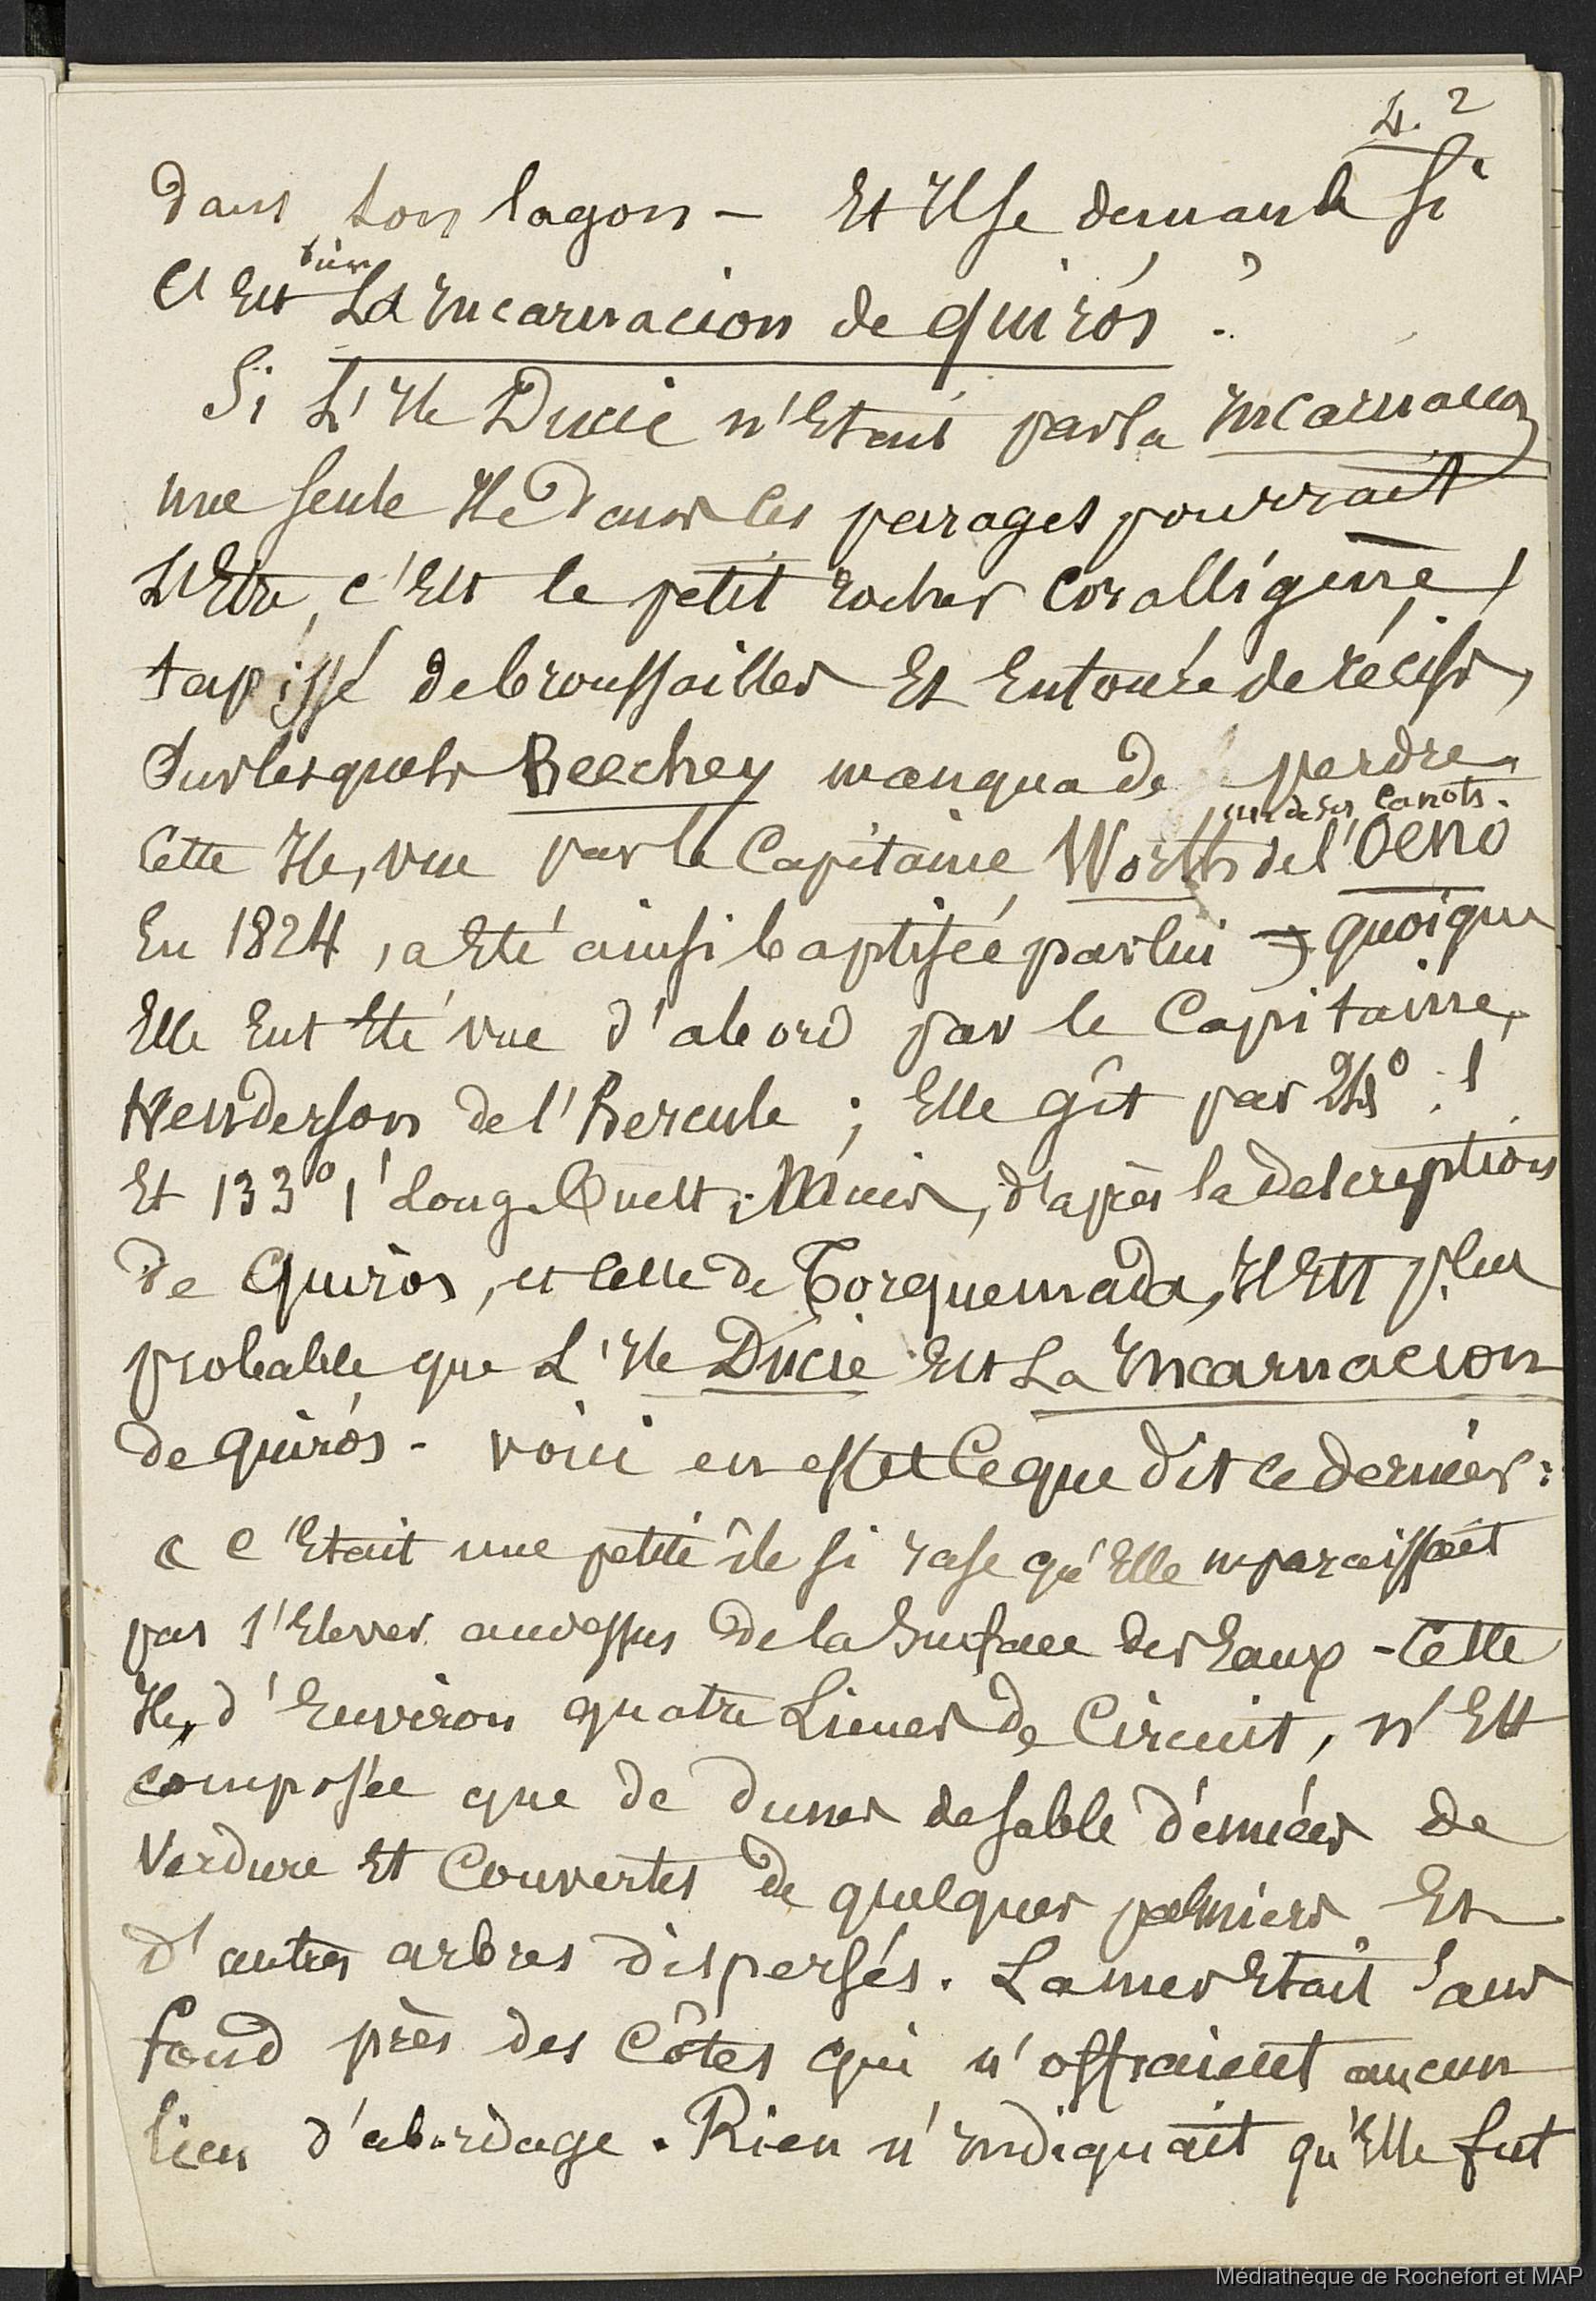 L. 2
dans son lagon – Et Il se demande si
c'Est bien La Incarnacion de Quirós ?
Si L'Ile Ducie n'Etait pas la Incarnacion
une seule Ile dans les parages pourrait
L'Etre, c'Est le petit rocher coralligène,
tapissé de broussailles Et Entouré de récifs,
Sur lesquels Beechey manqua de perdre
un de ses Canots.
Cette Ile, vue par le Capitaine Worth de l'Oeno
En 1824, a Eté ainsi baptisée par lui – quoique
Elle Eut Eté vue d'abord par le Capitaine
Henderson de l'Hercule ; Elle gît par 24° 1'
Et 133° 1' Long. Ouest. Mais, d'après la description
de Quiros, et celle de Torquemada, Il Est plus
probable que L'Ile Ducie Est La Incarnacion
de Quirós - voici en effet Ce que dit ce dernier :
« C'Etait une petite île si rase qu'Elle ne paraissait
pas s'Elever au dessus de la Surface des Eaux - Cette
Ile, d'Environ quatre Lieues de Circuit, n'Est
composée que de dunes de sable dénuées de
Verdure Et Couvertes de quelques palmiers Et
d'autres arbres dispersés. La mer Etait Sans
fond près des Côtes qui n'offraient aucun
lieu d'abordage. Rien n'Indiquait qu'Elle fut
Médiathèque de Rochefort et MAP